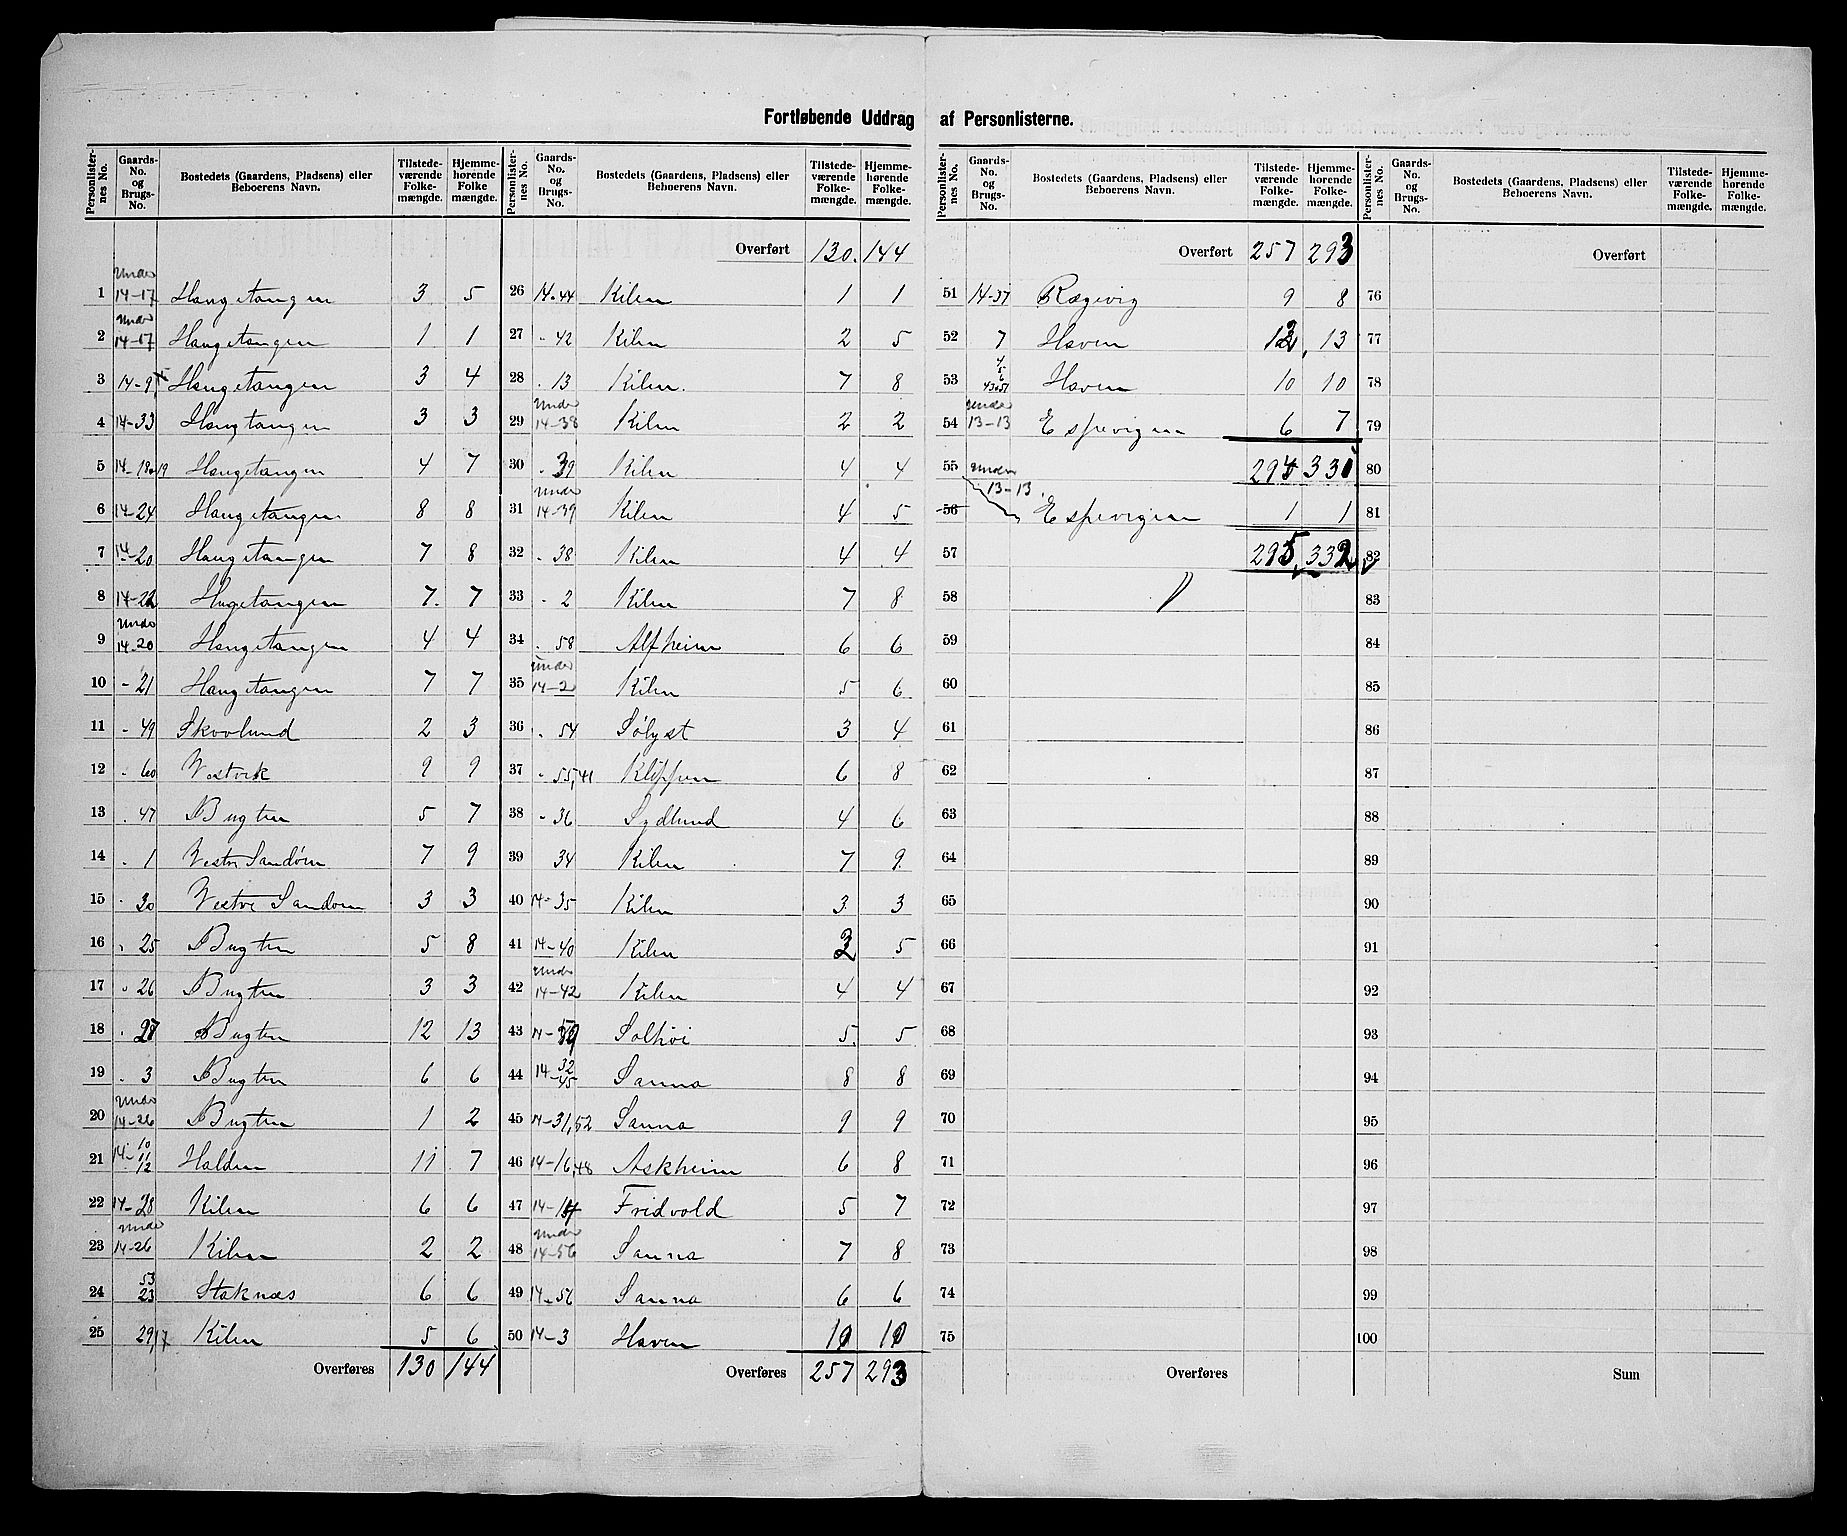 Fortløbende Uddrag af Personlisterne.
Personlisternes No. | Gaards-No. og Brugs-No. | Bostedets (Gaardens, Pladsens) eller Beboerens Navn. | Tilstedeværende Folkemængde. | Hjemmehørende Folkemængde.
1 | Under 14-17 | Haugetangen | 3 | 5
2 | Under 14-17 | Haugetangen | 1 | 1
3 | 14-9 | Haugetangen | 3 | 4
4 | 14-33 | Haugtangen | 3 | 3
5 | 14-18 19 | Haugetangen | 4 | 7
6 | 14-24 | Haugetangen | 8 | 8
7 | 14-20 | Haugetangen | 7 | 8
8 | 14-22 | Hugetangen | 7 | 7
9 | Under 14-20 | Haugetangen | 4 | 4
10 | - 21 | Haugetangen | 7 | 7
11 | - 49 | Skovlund | 2 | 3
12 | - 60 | Vestvik | 9 | 9
13 | - 47 | Bugten | 5 | 7
14 | - 1 | Vestre Sandøen | 7 | 9
15 | - 30 | Vestre Sandøen | 3 | 3
16 | - 25 | Bugten | 5 | 8
17 | - 26 | Bugten | 3 | 3
18 | - 27 | Bugten | 12 | 13
19 | - 3 | Bugten | 6 | 6
20 | Under 14-26 | Bugten | 1 | 2
21 | 14-10 11 12 | Halden | 11 | 7
22 | 14-28 | Kilen | 6 | 6
23 | Under 14-26 | Kilen | 2 | 2
24 | 53 23 | Staknæs | 6 | 6
25 | 29,17 | Kilen | 5 | 6
Overføres | 130 | 144
Personlisternes No. | Gaards-No. og Brugs-No. | Bostedets (Gaardens, Pladsens) eller Beboerens Navn. | Tilstedeværende Folkemængde. | Hjemmehørende Folkemængde.
Overført | 130. | 144
26 | 14-44 | Kilen | 1 | 1
27 | - 42 | Kilen | 2 | 5
28 | - 13 | Kilen. | 7 | 8
29 | Under 14-38 | Kilen | 2 | 2
30 | - 39 | Kilen | 4 | 4
31 | Under 14-39 | Kilen | 4 | 5
32 | - 38 | Kilen | 4 | 4
33 | - 2 | Kilen | 7 | 8
34 | - 58 | Alfheim | 6 | 6
35 | Under 14-2 | Kilen | 5 | 6
36 | - 54 | Sølyst | 3 | 4
37 | - 55,41 | Klippen | 6 | 8
38 | - 36 | Sydlund | 4 | 6
39 | 34 | Kilen | 7 | 9
40 | 14-35 | Kilen | 3 | 3
41 | 14-40 | Kilen | 3 | 5
42 | Under 14-42 | Kilen | 4 | 4
43 | 14-59 | Solhøi | 5 | 5
44 | 14-32 45 | Sanna | 8 | 8
45 | 14-31,52 | Sanna | 9 | 9
46 | 14-16,48 | Askheim | 6 | 8
47 | 14-14 | Fridvold | 5 | 7
48 | Under 14-56 | Sanna | 7 | 8
49 | 14-56 | Sanna | 6 | 6
50 | 14-3 | Haven | 10 | 10
Overføres | 257 | 293
Personlisternes No. | Gaards-No. og Brugs-No. | Bostedets (Gaardens, Pladsens) eller Beboerens Navn. | Tilstedeværende Folkemængde. | Hjemmehørende Folkemængde.
Overført | 257 | 293
51 | 14-37 | Rægevig | 9 | 8
52 | 7 | Haven | 12 | 13
53 | 4 5 6 43 51 | Haven | 10 | 10
54 | Under 13-13 | Espevigen | 6 | 7
294 | 331
55 | Under 13-13. | Espevigen | 1 | 1
56
57 | 295 | 332
58
59
60
61
62
63
64
65
66
67
68
69
70
71
72
73
74
75
Overføres
Personlisternes No. | Gaards-No. og Brugs-No. | Bostedets (Gaardens, Pladsens) eller Beboerens Navn. | Tilstedeværende Folkemængde. | Hjemmehørende Folkemængde.
Overført
76
77
78
79
80
81
82
83
84
85
86
87
88
89
90
91
92
93
94
95
96
97
98
99
100
Sum